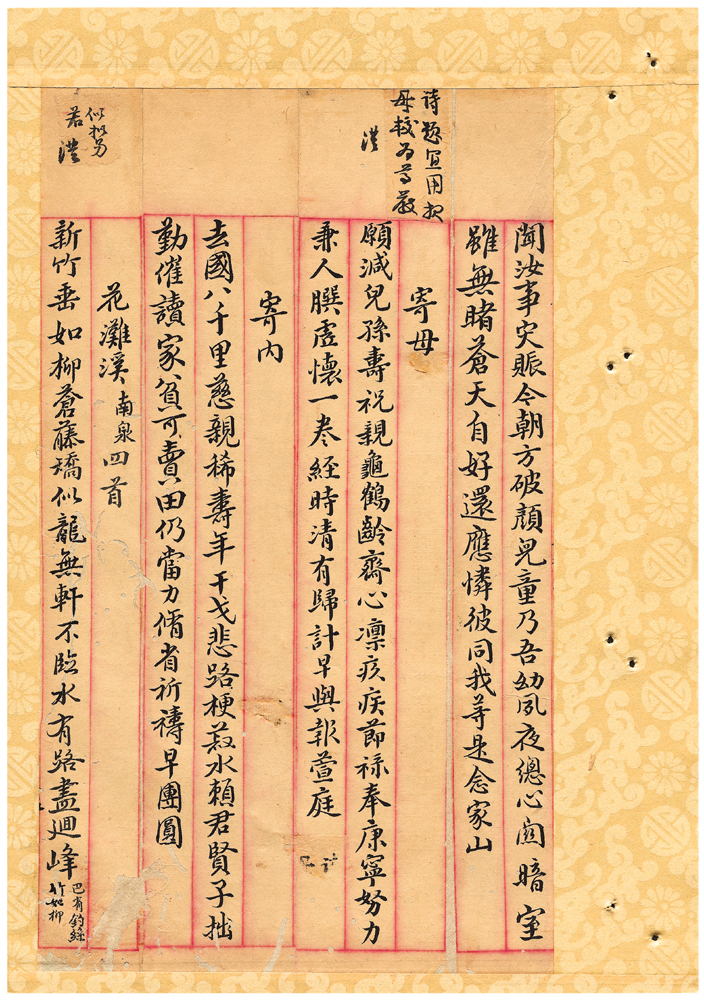 诗题宜用报
母較为尊严
洪
聞汝事災賑今朝方破顏兒童乃吾幼夙夜總心關暗室
雖無睹蒼天自好還應憐彼同我等是念家山
寄母
願減兒孫壽祝親龜鶴齡齋心凜疾疾節祿奉康寧努力
兼人膳虛懷一卷經時清有歸計早與報萱庭
寄内
去國八千里慈親稀壽年干戈悲路梗菽水賴君賢子拙
勤催讀家貧可賣田仍當力脩省祈禱早團圓
花灘溪南泉四首
似
若洪
新竹垂如柳蒼藤矯似龍無軒不臨水有路盡迴峰巴有釣絲
竹如柳